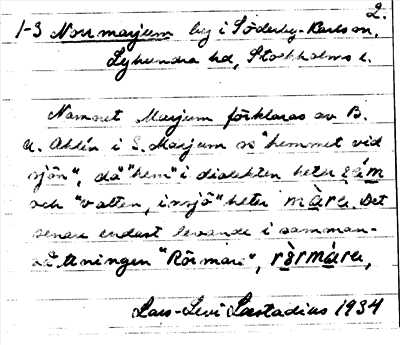 2.
1-3 Norrmarjum by i Söderby-Karls sn,
Lyhundra hd, Stockholms l.
Namnet Marjum förklaras av B.
U. Ahlén i S. Marjum ss "hemmet vid
sjön", då "hem" i dialekten heter
och "vatten, insjö" heter màra. Det
senare endast levande i samman-
sättningen "Rörmare", rö̀rmàra,
Lars-Levi Læstadius 1934